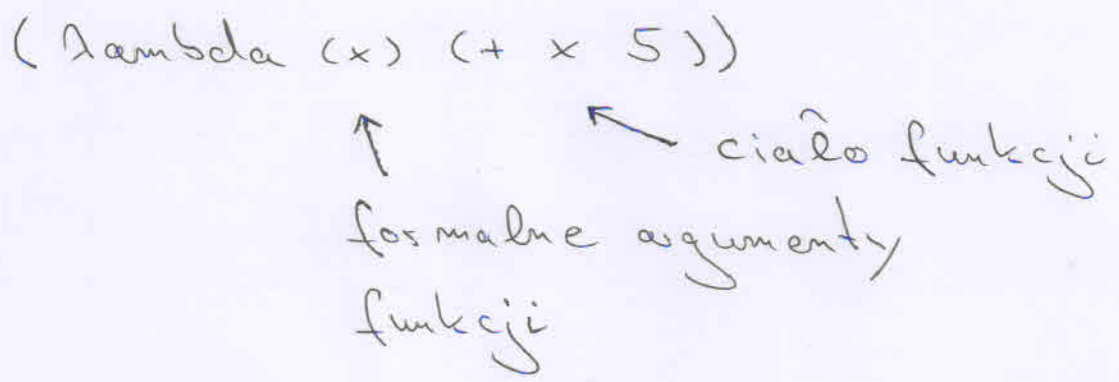 (lambda (x) (+ x 5))
ciało funkcji
formalne argumenty
funkcji